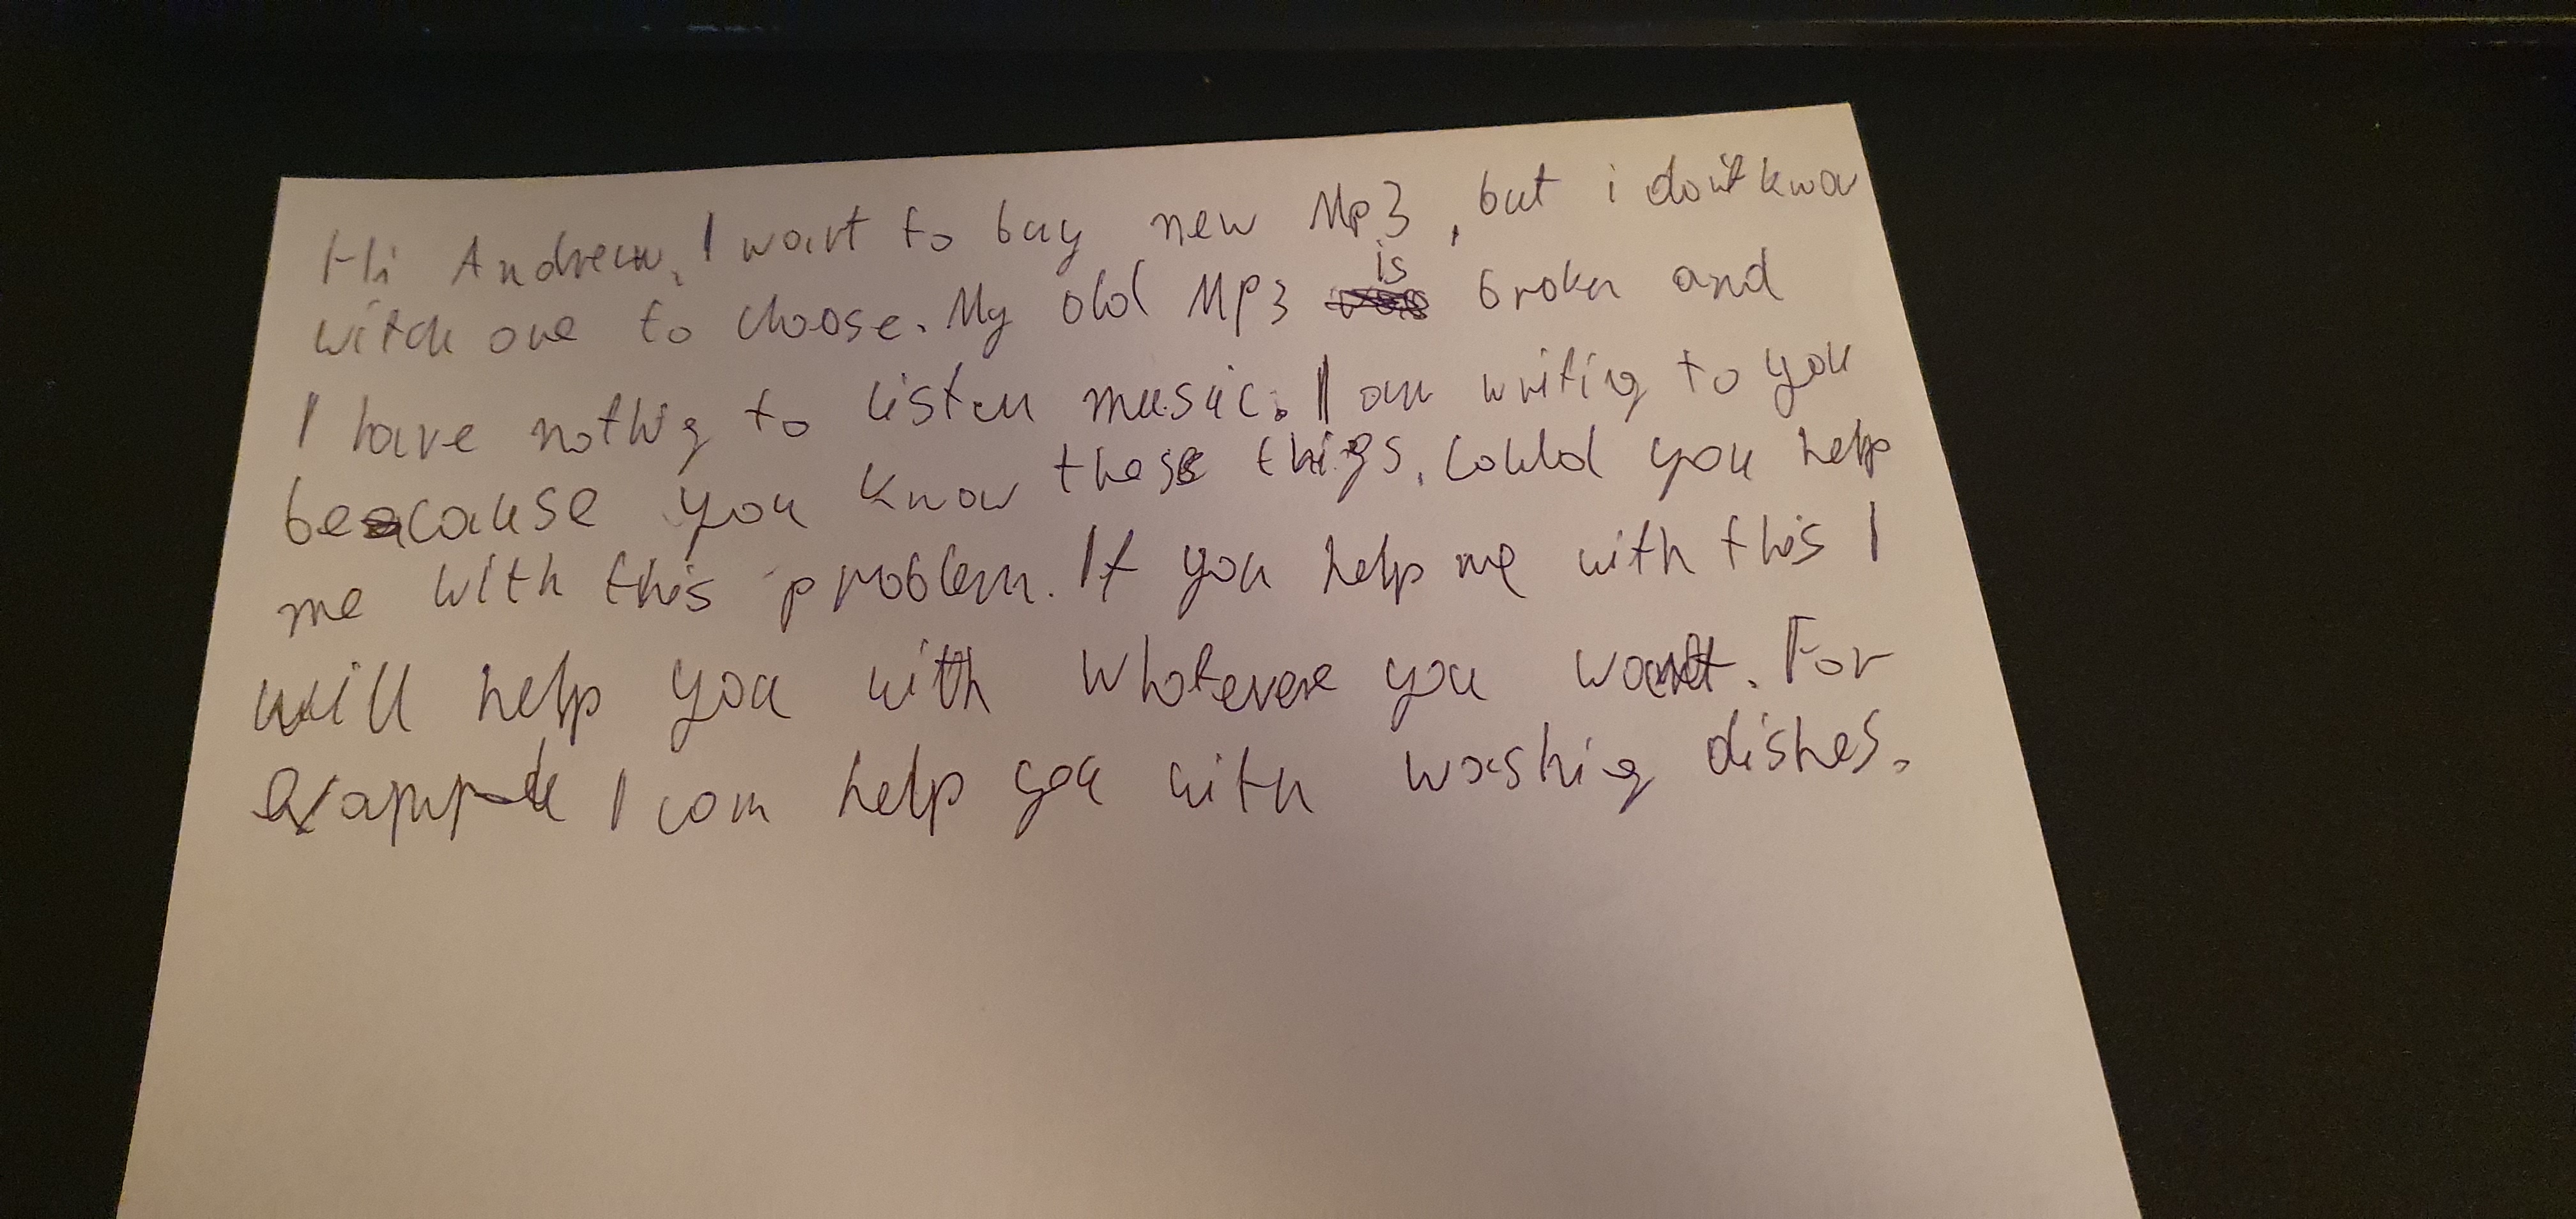 Hi Andrew, I want to buy new Mp3, but i don't know
witch one to choose. My old MP3 is broken and
I have nothig to listen music. I am writing to you
because you know these things. Could you help
me with this problem. If you help me with this I
will help you with whatevere you want. For
example I can help you with washing dishes.